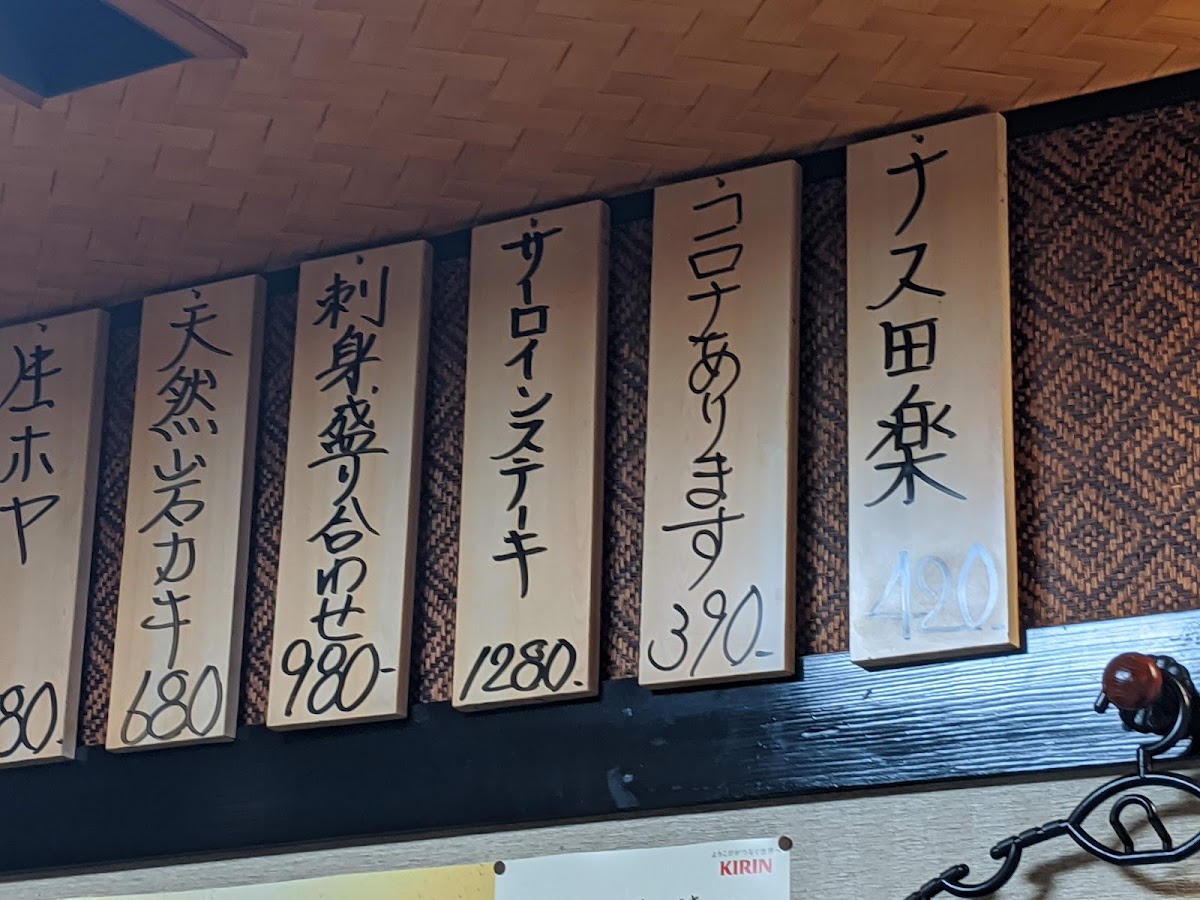 ナス田楽
420.
コロナあります
390.-
サーロインステーキ
1280.
刺身盛り合わせ
980-
天然岩カキ
680
生ホヤ
80.
よろこびがつなぐ世界へ
KIRIN